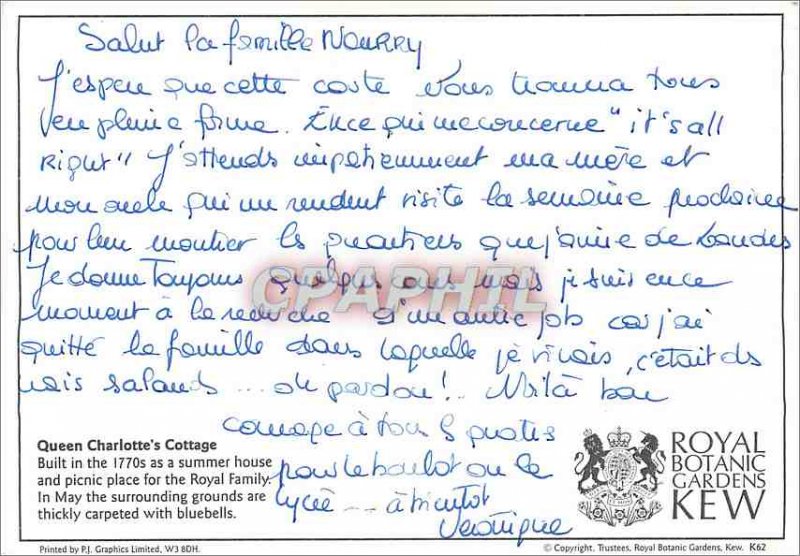 Salut la famille NOURRY
J'espère que cette carte vous trouvera tous
en pleine forme. En ce qui me concerne "it's all
Right" J'attends impatiemment ma mère et
mon oncle qui me rendent visite la semaine prochaine
pour leur montrer les quartiers que j'aime de Londres
Je donne Toujours quelques cours mais je suis en ce
moment à la recherche d'un autre job car j'ai
quitté la famille dans laquelle je vivais, c'était des
vrais salauds ... oh pardon! .. Voilà bon
courage à tous
pour le boulot ou le
lycée ... à bientôt
Véronique
CPAPHIL
Queen Charlotte's Cottage
Built in the 1770s as a summer house
and picnic place for the Royal Family.
In May the surrounding grounds are
thickly carpeted with bluebells.
ROYAL
BOTANIC
GARDENS
KEW
Printed by P.J. Graphics Limited, W3 8DH.
© Copyright, Trustees, Royal Botanic Gardens, Kew. K62